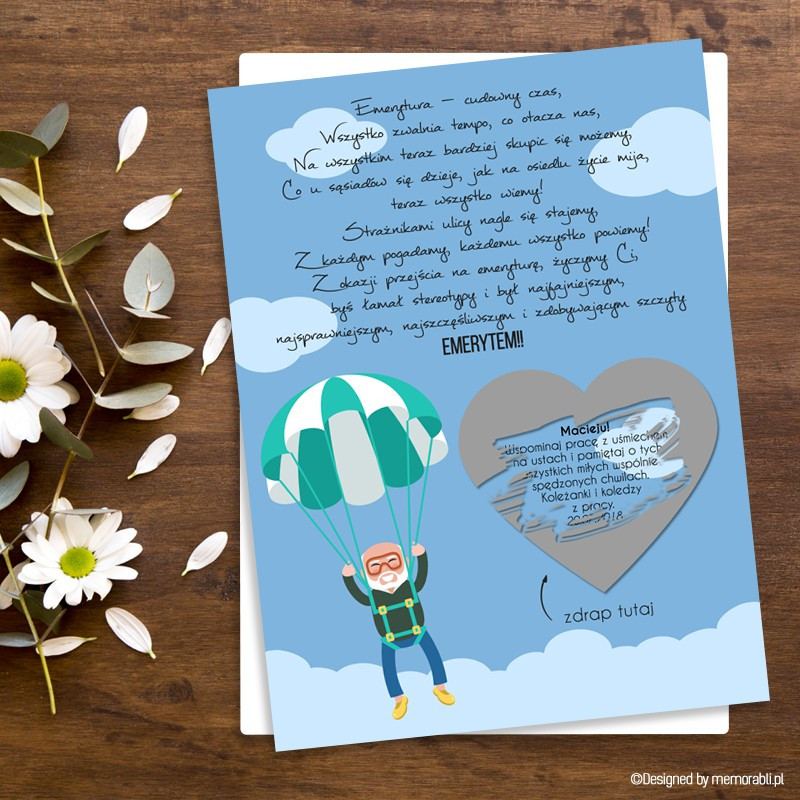 Emerytura – cudowny czas,
Wszystko zwalnia tempo, co otacza nas,
Na wszystkim teraz bardziej skupic się możemy,
Co u sąsiadów się dzieje, jak na osiedlu życie mija,
teraz wszystko wiemy!
Strażnikami ulicy nagle się stajemy,
Z każdym pogadamy, każdemu wszystko powiemy!
Z okazji przejścia na emeryturę, życzymy Ci,
byś łamał stereotypy i był najfajniejszym,
najsprawniejszym, najszczęśliwszym i zdobywającym szczyty
EMERYTEM!!
Macieju!
Wspominaj pracę z uśmiechem
na ustach i pamiętaj o tych
wszystkich miłych wspólnie
spędzonych chwilach.
Koleżanki i koledzy
z pracy.
zdrap tutaj
©Designed by memorabli.pl